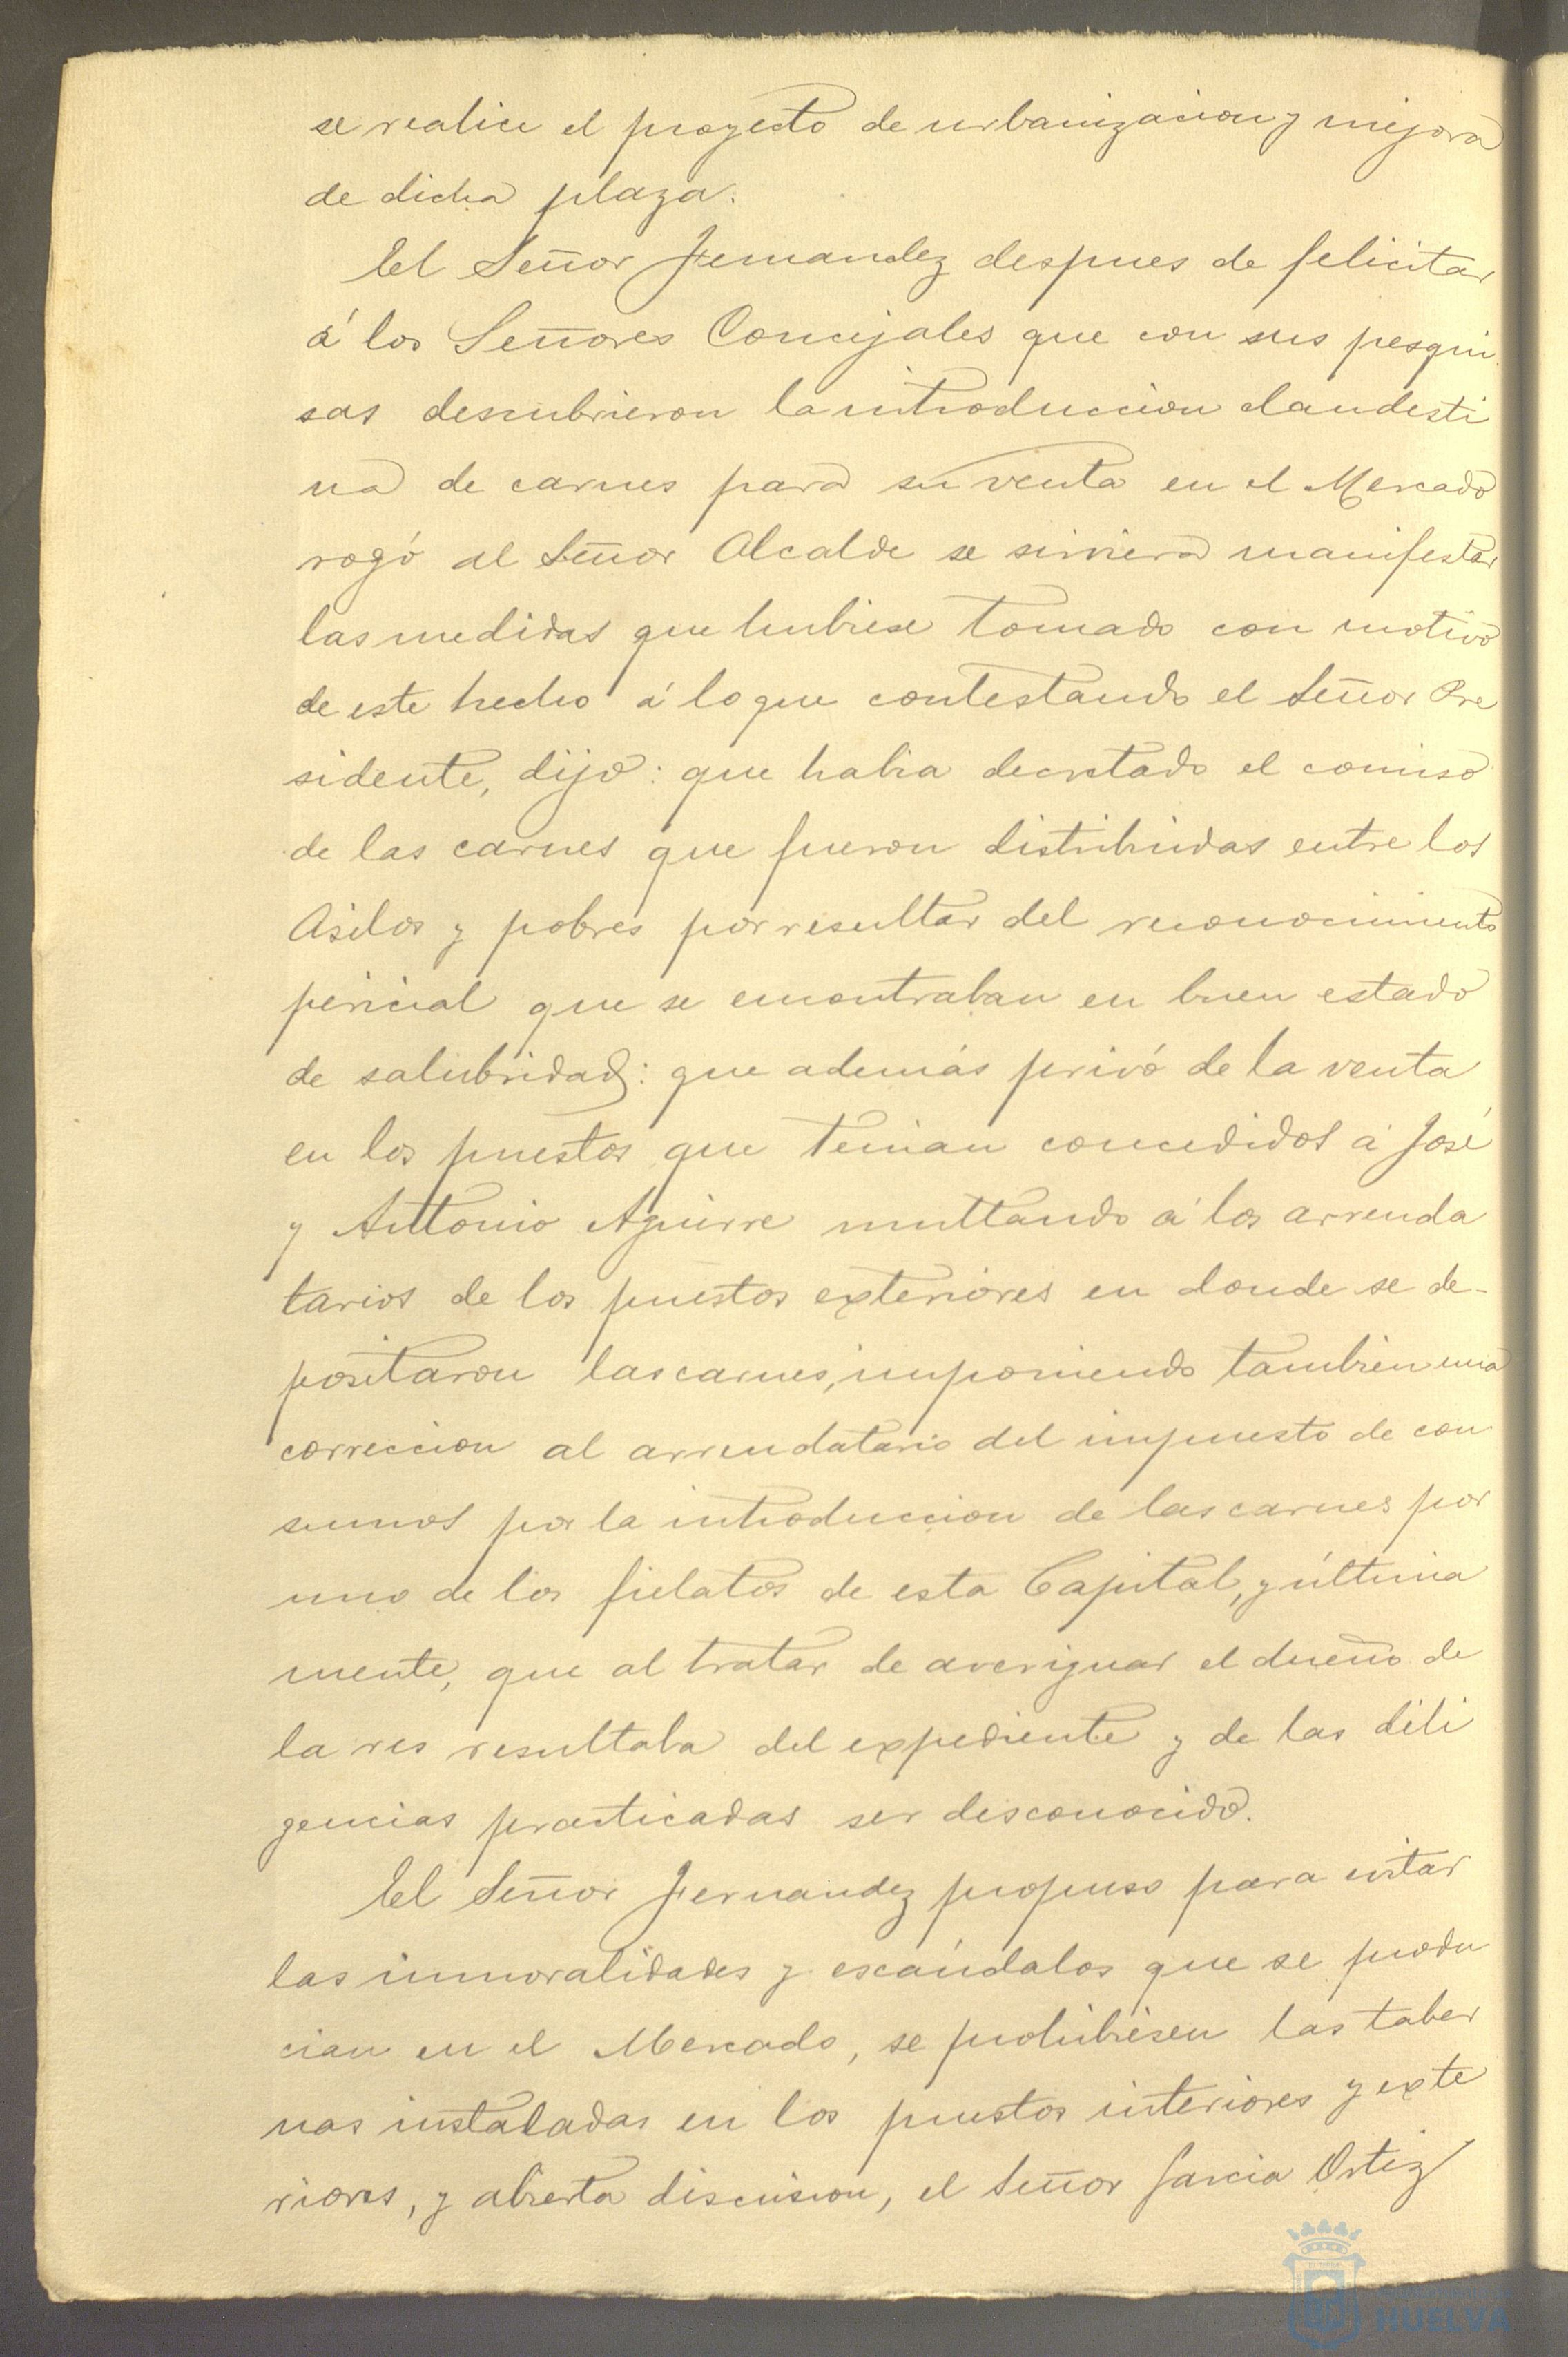 se realice el proyecto de urbanizacion y mejora
de dicha plaza.
El Señor Fernandez despues de felicitar
á los Señores Concejales que con sus pesqui
sas descubrieron la introduccion clandesti
na de carnes para su venta en el Mercado
rogó al Señor Alcalde se sirviera manifestar
las medidas que hubiese tomado con motivo
de este hecho á lo que contestando el Señor Pre
sidente, dijo: que habia decretado el comiso
de las carnes que fueron distribuidas entre los
Asilos y pobres por resultar del reconocimiento
pericial que se encontraban en buen estado
de salubridad: que además privó de la venta
en los puestos que tenian concedidos á José
y Antonio Aguirre multando á los arrenda
tarios de los puestos exteriores en donde se de-
positaron las carnes, imponiendo tambien una
correccion al arrendatario del impuesto de con
sumos por la introduccion de las carnes por
uno de los fielatos de esta Capital, y última
mente, que al tratar de averiguar el dueño de
la res resultaba del expediente y de las dili
gencias practicadas ser desconocido.
El Señor Fernandez propuso para evitar
las inmoralidades y escándalos que se produ
cian en el Mercado, se prohibiesen las taber
nas instaladas en los puestos interiores y exte
riores, y abierta discusion, el Señor Garcia Ortiz
HUELVA